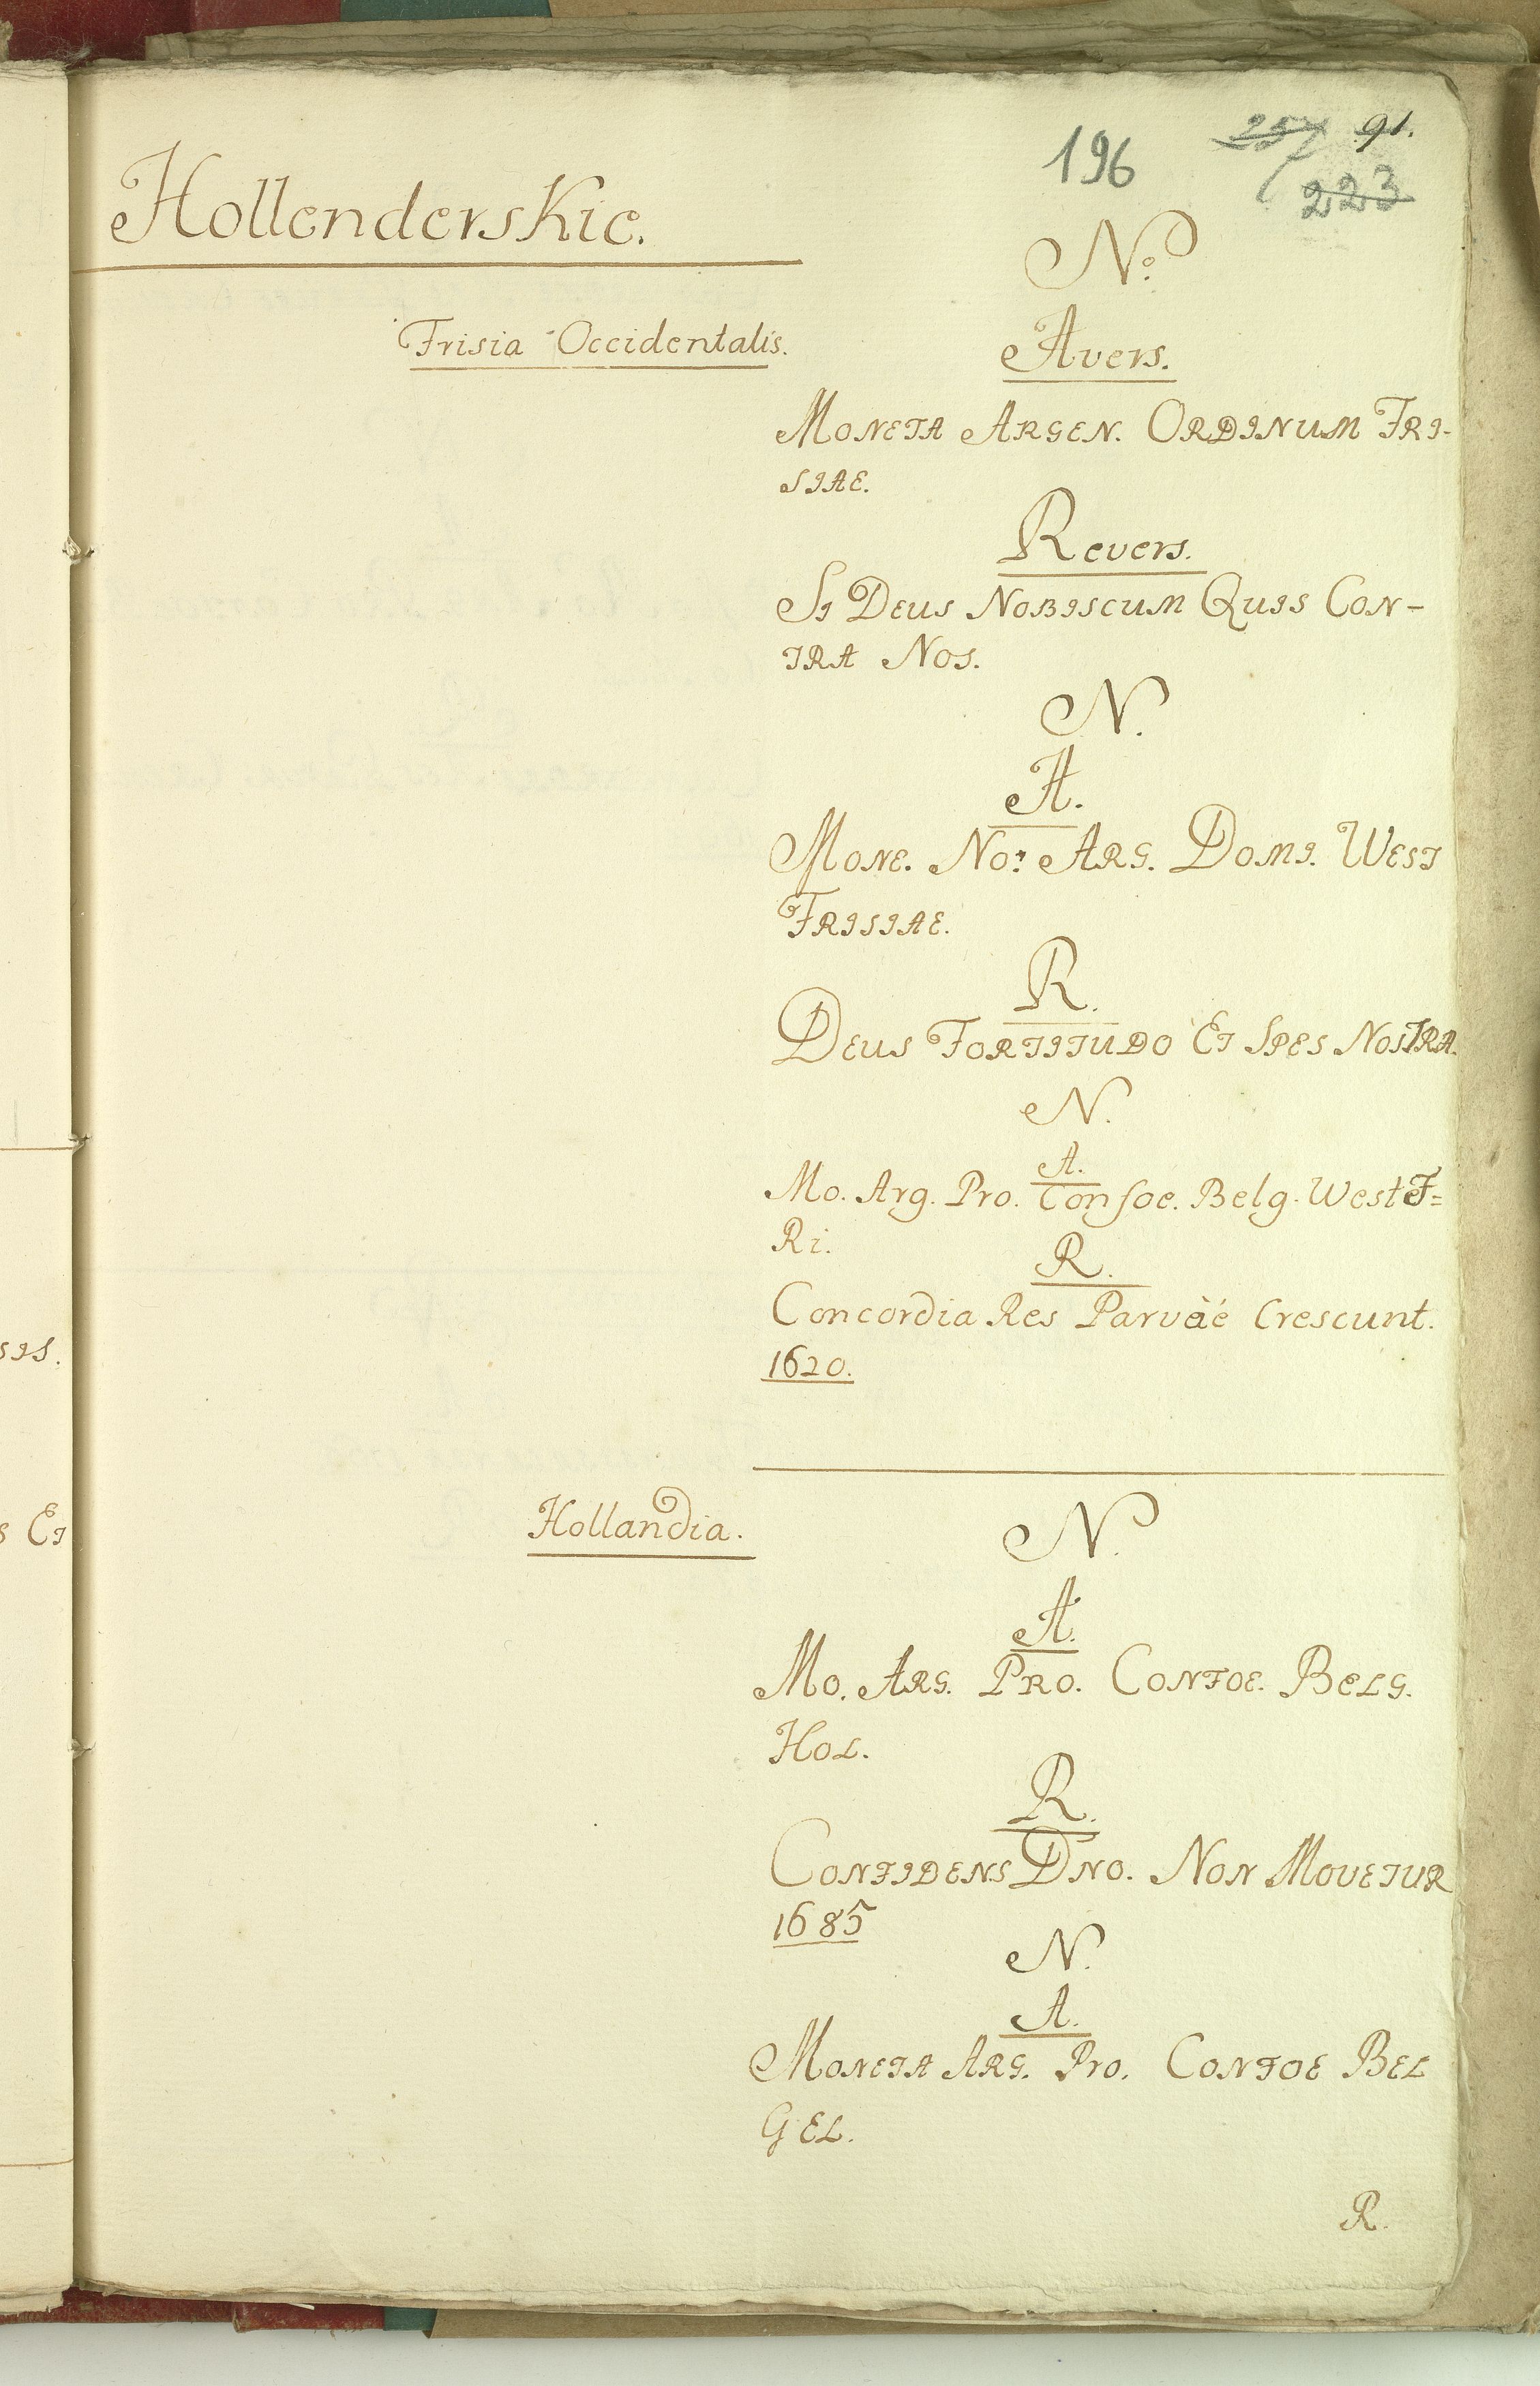 196 257 91.
223
Hollenderskie.
No.
Frisia Occidentalis.
Avers.
MONETA ARGEN. ORDINUM FRI-
SIAE.
Revers.
SI DEUS NOBISCUM QUIS CON-
TRA NOS.
N.
A.
MONE. NO: ARG. DOMI. WEST
FRISIAE.
R.
DEUS FORTITUDO ET SPES NOSTRA.
N.
A.
Mo. Arg. Pro. Confoe. Belg. West F=
Ri.
R.
Concordia Res Parvaé Crescunt.
1620.
SIS.
Hollandia.
N.
S ET
A.
MO. ARG. PRO. CONFOE. BELG.
HOL.
R.
CONFIDENS DNO. NON MOVETUR
1685
N.
A.
MONETA ARG. Pro. CONFOE BEL
GEL.
R.